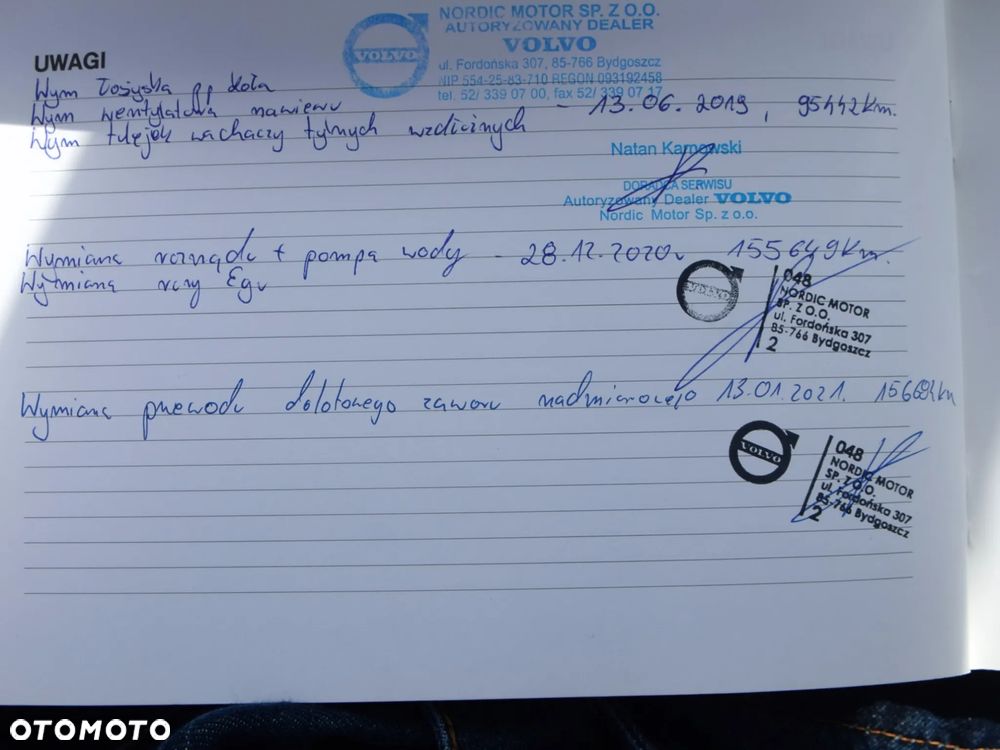 NORDIC MOTOR SP. Z O.O.
AUTORYZOWANY DEALER
VOLVO
VOLVO
ul. Fordońska 307, 85-766 Bydgoszcz
NIP 554-25-83-710 REGON 093192458
tel. 52/ 339 07 00, fax 52/ 339 07 17
UWAGI
Wym łożyska pp koła
Wym wentylatora nawiewu - 13.06.2019, 95442km.
Wym tulejek wachaczy tylnych wzdłużnych
Natan Karnowski
DORADCA SERWISU
Autoryzowany Dealer VOLVO
Nordic Motor Sp. z o.o.
Wymiana rozrządu + pompa wody - 28.12.2020r 155649km.
Wymiana rury Egr
VOLVO
048
NORDIC MOTOR
SP. Z O.O.
ul. Fordońska 307
85-766 Bydgoszcz
2
Wymiana przewodu dolotowego zaworu nadmiarowego 13.01.2021. km
VOLVO
048
NORDIC MOTOR
SP. Z O.O.
ul. Fordońska 307
85-766 Bydgoszcz
2
OTOMOTO